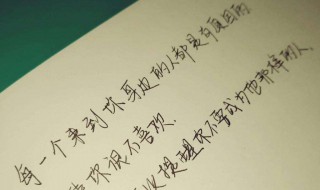 每一个来到你身边的人都是有原因的
你很不喜欢.
以提醒你不要成为他那样的人.